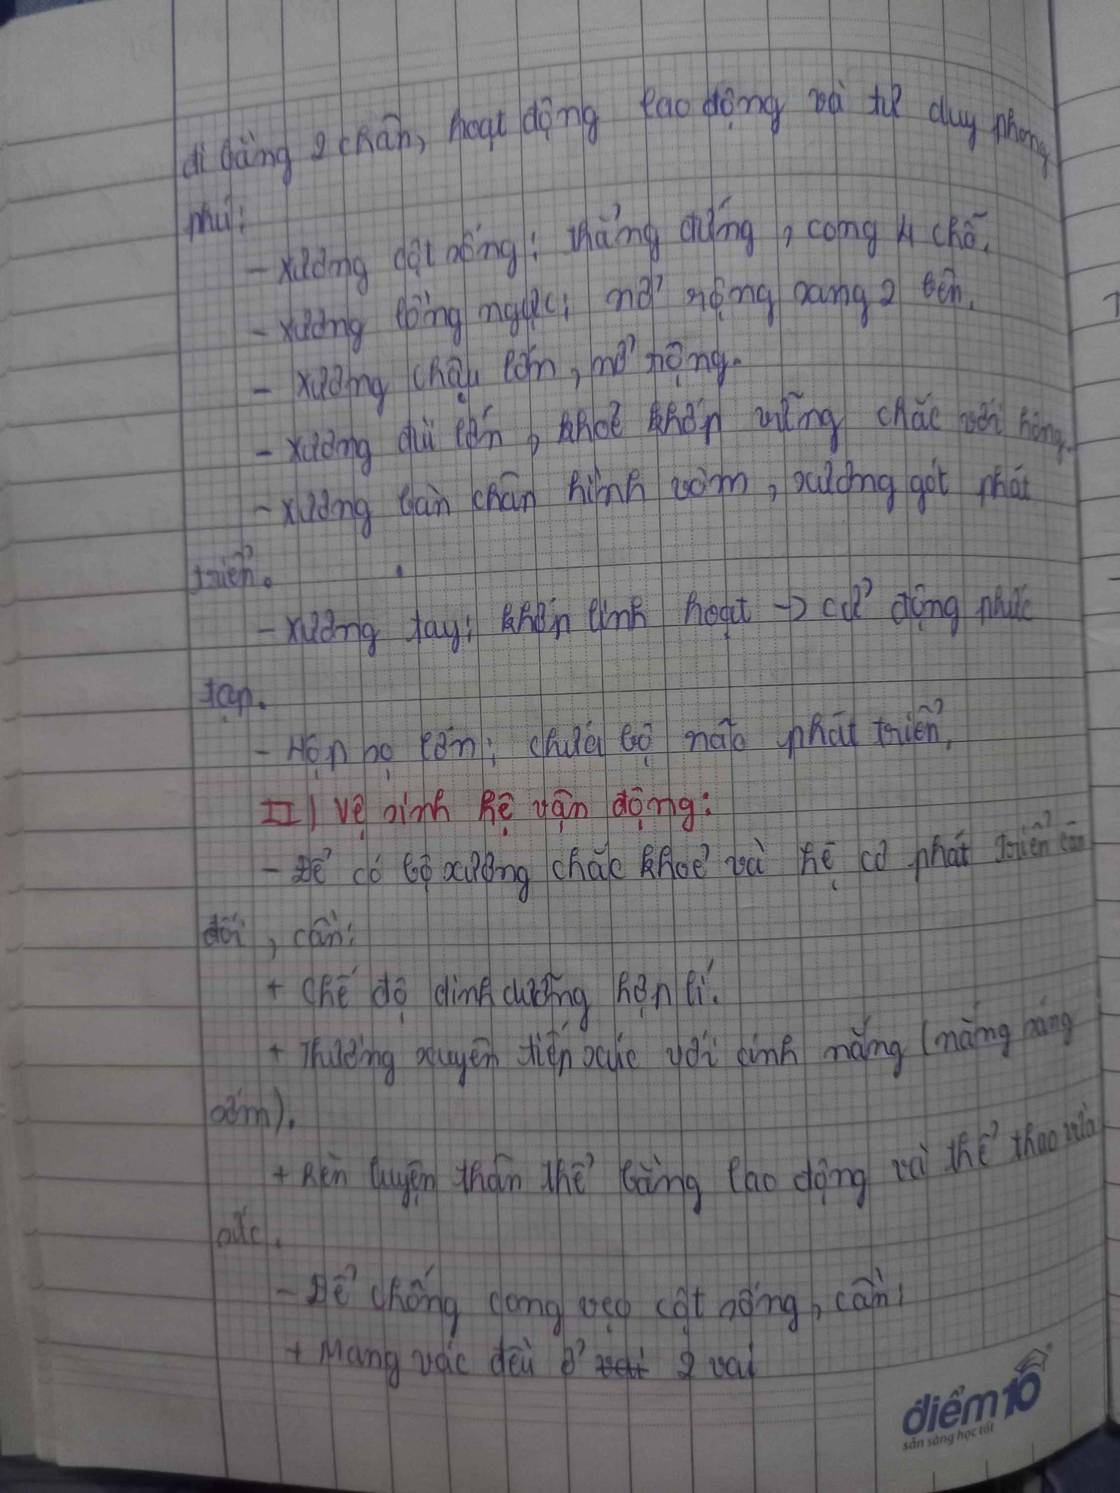 đi bằng 2 chân, hoạt động lao động và tư duy phong
phú:
- xương cột sống: thẳng đứng, cong 4 chỗ.
- xương lồng ngực: nở rộng sang 2 bên.
- xương chậu lớn, nở rộng.
- xương đùi lớn, khoẻ khớp vững chắc với hông.
- xương bàn chân hình vòm, xương gót phát
triển.
- xương tay: khớp linh hoạt → cử động phức
tạp.
- Hộp sọ lớn: chứa bộ não phát triển.
II) Vệ sinh hệ vận động:
- Để có bộ xương chắc khoẻ và hệ cơ phát triển cân
đối, cần:
+ chế độ dinh dưỡng hợp lí.
+ Thường xuyên tiếp xúc với ánh nắng (nắng sáng
sớm).
+ Rèn luyện thân thể bằng lao động và thể thao vừa
sức.
- Để chống cong vẹo cột sống, cần:
+ Mang vác đều ở 2 vai
điểm 10
sẵn sàng học tốt